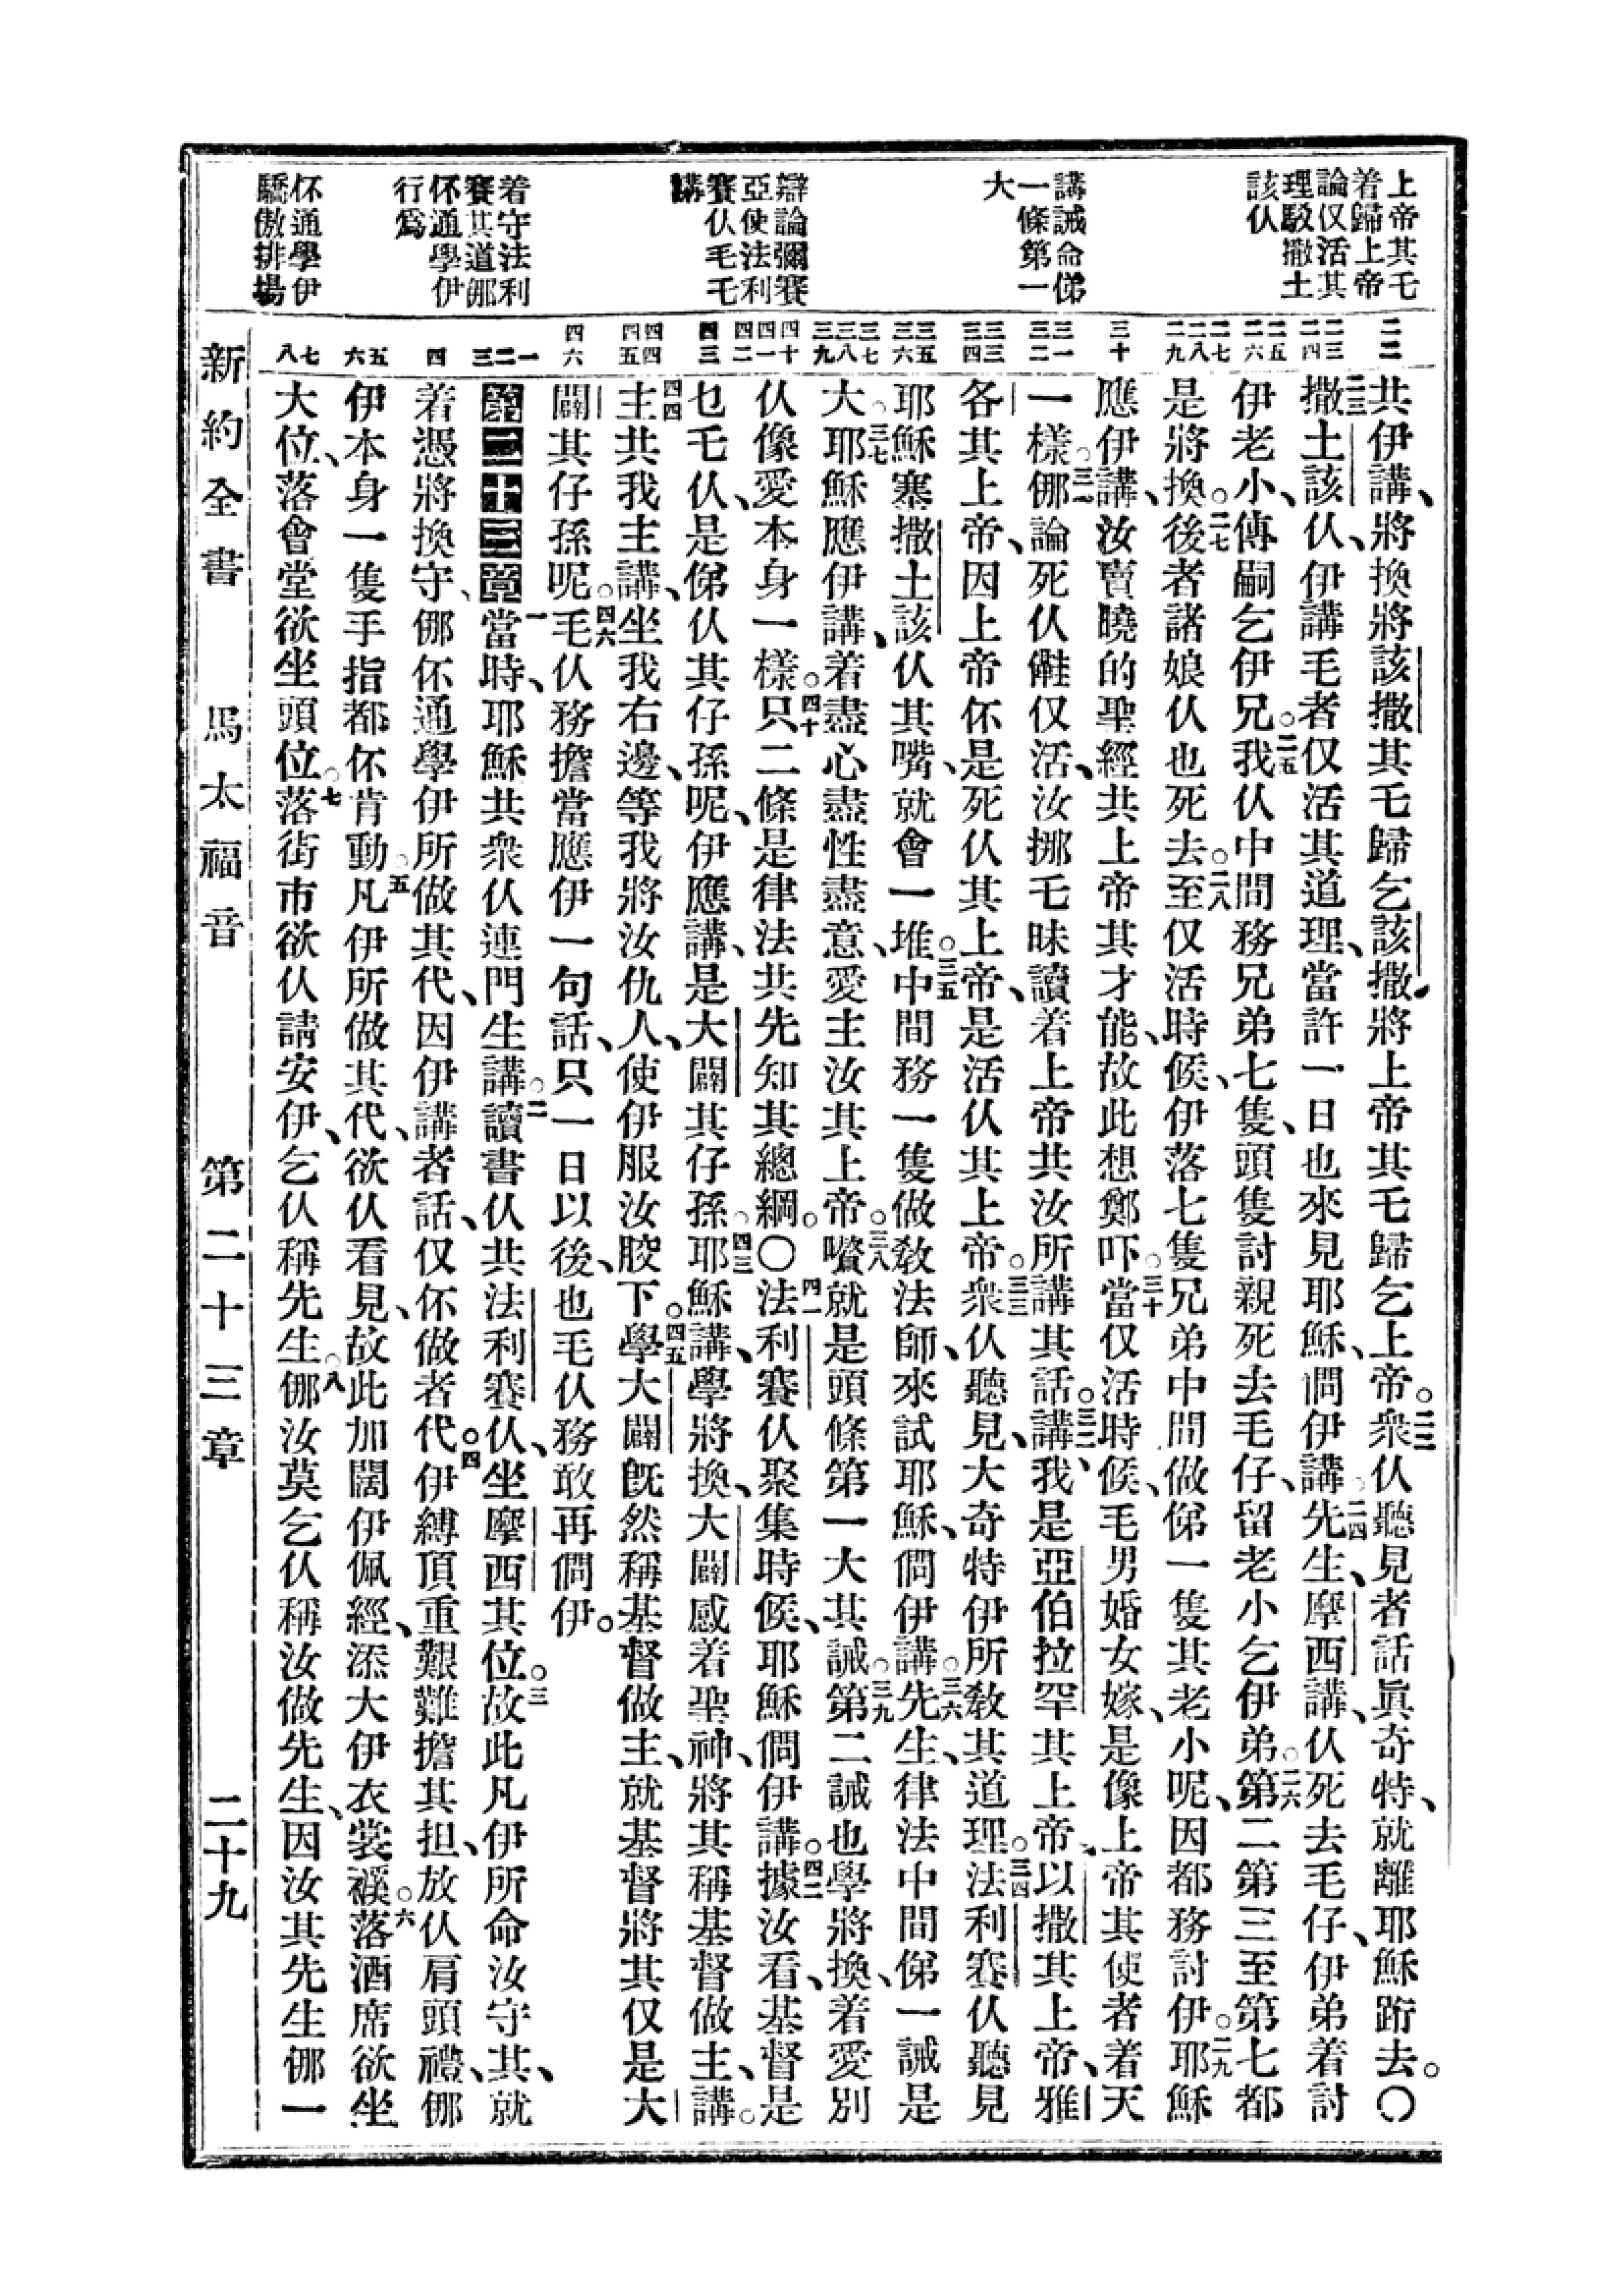 上帝其乇
着歸上帝
論仅活其
理駁撒土
該仈
講誡命俤
一條第一
大
辯論彌賽
亞使法利
賽仈毛乇
講
着守法利
賽其道㑚
伓通學伊
行爲
伓通學伊
驕傲排塲
二二
二三
二四
二五
二六
二七
二八
二九
三十
三一
三二
三三
三四
三五
三六
三七
三八
三九
四十
四一
四二
四三
四四
四五
四六
一
二
三
四
五
六
七
八
共伊講、將換將該撒其乇歸乞該撒、將上帝其乇歸乞上帝。二二衆仈聽見者話眞奇特、就離耶穌跔去。〇
二三撒土該仈、伊講毛者仅活其道理、當許一日也來見耶穌、問伊講、二四先生、摩西講、仈死去毛仔、伊弟着討
伊老小、傳嗣乞伊兄。二五我仈中間務兄弟七隻、頭隻討親死去毛仔、留老小乞伊弟。二六第二第三至第七都
是將換。二七後者諸娘仈也死去。二八至仅活時候、伊落七隻兄弟中間做俤一隻其老小呢、因都務討伊。二九耶穌
應伊講、汝賣曉的聖經共上帝其才能、故此想鄭吓。三十當仅活時候、毛男婚女嫁、是像上帝其使者着天
一樣。三一㑚論死仈仅活、汝挪乇昧讀着上帝共汝所講其話。三二講、我是亞伯拉罕其上帝、以撒其上帝、雅
各其上帝、因上帝伓是死仈其上帝、是活仈其上帝。三三衆仈聽見、大奇特伊所敎其道理。三四法利賽仈聽見
耶穌塞撒土該仈其嘴、就會一堆。三五中間務一隻做敎法師、來試耶穌、問伊講。三六先生、律法中間俤一誡是
大。三七耶穌應伊講、着盡心盡性盡意、愛主汝其上帝。三八就是頭條第一大其誡。三九第二誡也學將換、着愛別
仈像愛本身一樣。四十只二條是律法共先知其總綱。〇四一法利賽仈聚集時候、耶穌問伊講。四二據汝看、基督是
乜乇仈、是俤仈其仔孫呢、伊應講、是大闢其仔孫。四三耶穌講、學將換、大闢感着聖神、將其稱基督做主、講。
四四主共我主講、坐我右邊、等我將汝仇人、使伊服汝骹下。四五學大闢旣然稱基督做主、就基督將其仅是大
闢其仔孫呢。四六毛仈務擔當應伊一句話、只一日以後、也毛仈務敢再問伊。
第二十三章一當時、耶穌共衆仈連門生講。二讀書仈共法利賽仈、坐摩西其位。三故此凡伊所命汝守其、就
着憑將換守、㑚伓通學伊所做其代、因伊講者話、仅伓做者代。四伊縛頂重艱難擔其担、放仈肩頭禮、㑚
伊本身一隻手指都伓肯動。五凡伊所做其代、欲仈看見、故此加闊伊佩經、添大伊衣裳襏。六落酒席欲坐
大位、落會堂欲坐頭位。七落街市欲仈請安伊、乞仈稱先生。八㑚汝莫乞仈稱汝做先生、因汝其先生㑚一
新約全書　馬太福音　第二十三章　二十九